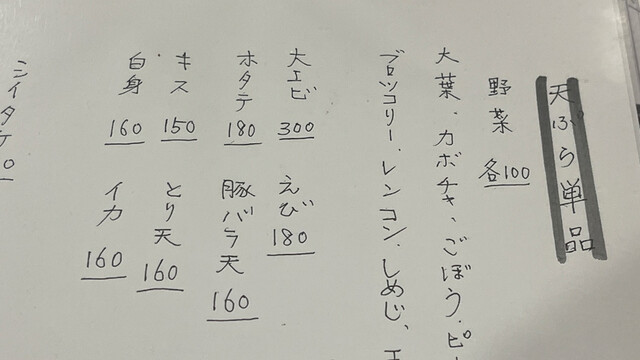 天ぷら単品
野菜 各100
大葉、カボチャ、ごぼう、ピー
ブロッコリー、レンコン、しめじ、エ
大エビ 300 えび 180
ホタテ 180 豚バラ天 160
キス 150 とり天 160
白身 160 イカ 160
シイタケ